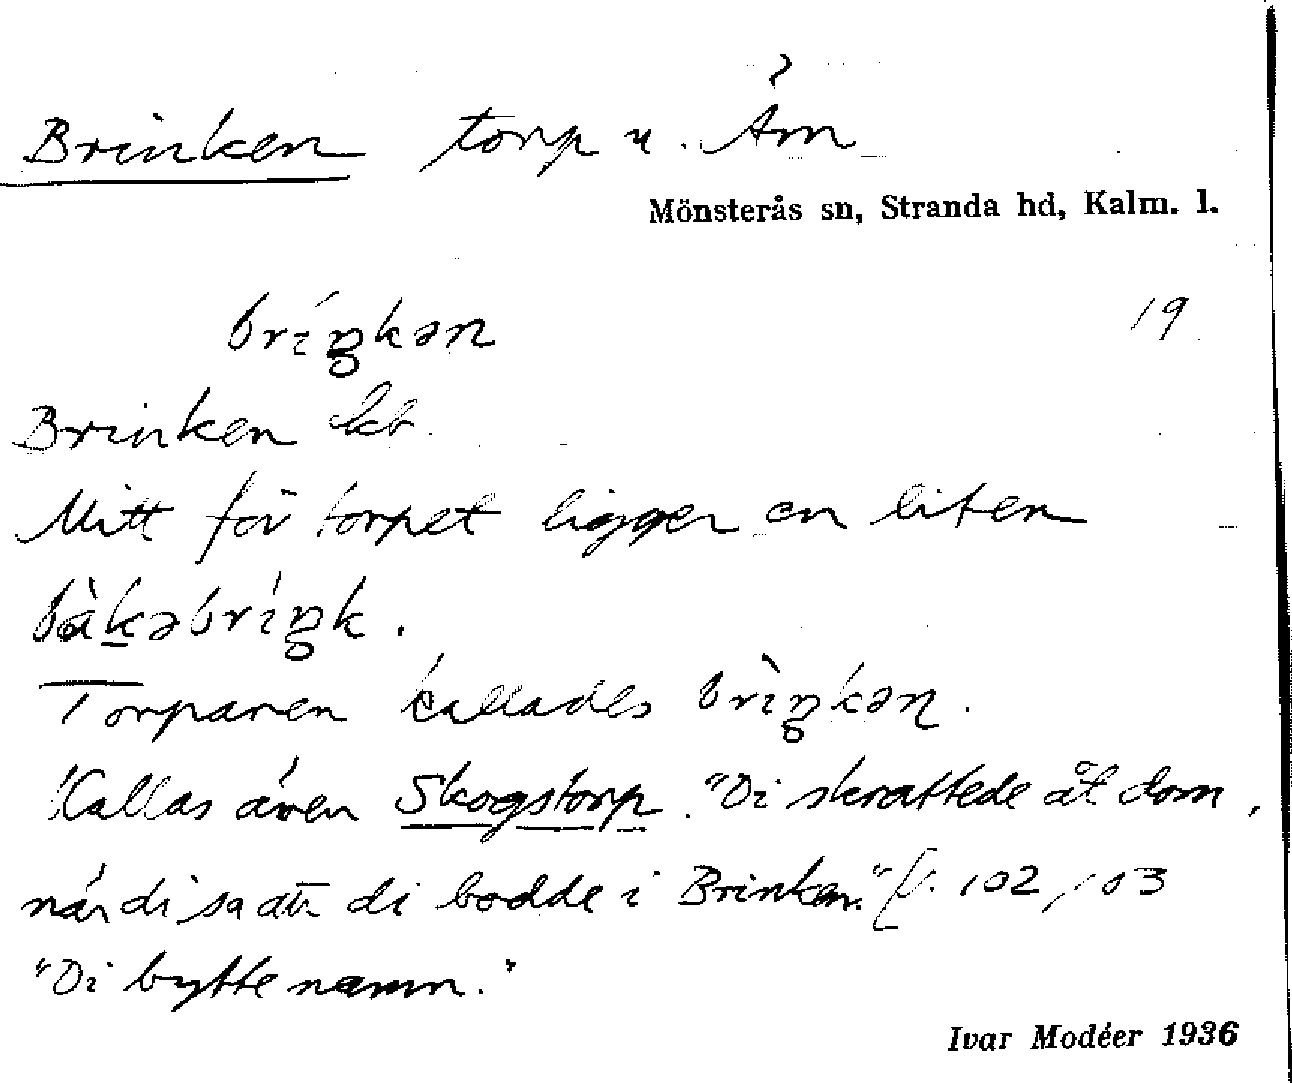 Brinken torp u. Åm
Mönsterås sn, Stranda hd, Kalm. l.
bríŋkən 19
Brinken kb.
Mitt för torpet ligger en liten
bàkəbríŋk.
Torparen kallades brìŋkən.
Kallas även Skogstorp. "Di skrattede åt dom,
när di sa att di bodde i Brinken." 102, 103
"Di bytte namn."
Ivar Modéer 1936